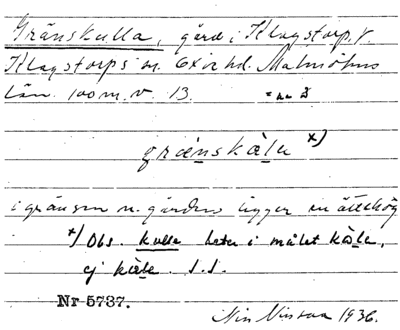 Gränskulla, gård i Klagstorp, V.
Klagstorps sn. Oxie hd. Malmöhus
län. 100 m. v. 13.
grænskàlu x)
i gränsen n. gårdens ligger en ättehög
x) Obs. kulle heter i målet kàla,
ej kàla. S.S.
Nr 5737.
1936.